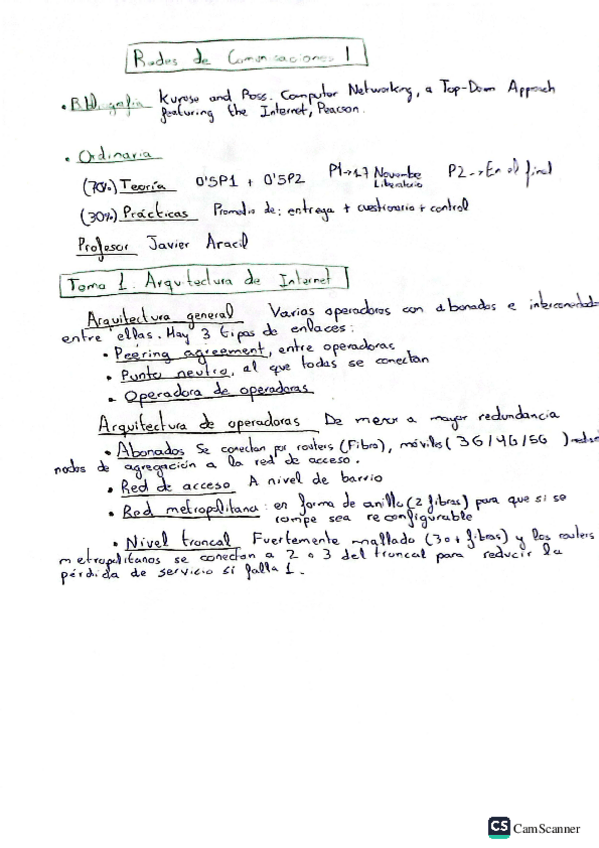 Redes de Comunicaciones I
• Bibliografía Kurose and Ross. Computer Networking, a Top-Down Approach
featuring the Internet, Pearson.
• Ordinaria
(70%) Teoría 0'5P1 + 0'5P2 P1→17 Noviembre P2→En el final
Liberatorio
(30%) Prácticas Promedio de: entrega + cuestionario + control
Profesor Javier Aracil
Tema 1. Arquitectura de Internet
Arquitectura general Varias operadoras con abonados e interconectadas
entre ellas. Hay 3 tipos de enlaces:
• Peering agreement, entre operadoras
• Punto neutro, al que todas se conectan
• Operadora de operadoras
Arquitectura de operadoras De menor a mayor redundancia
• Abonados Se conectan por routers (Fibra), móviles (3G/4G/5G)
nodos de agregación a la red de acceso.
• Red de acceso A nivel de barrio
• Red metropolitana: en forma de anillo (2 fibras) para que si se
rompe sea reconfigurable
• Nivel troncal Fuertemente mallado (3 o + fibras) y los routers
metropolitanos se conectan a 2 o 3 del troncal para reducir la
pérdida de servicio si falla 1.
CS CamScanner